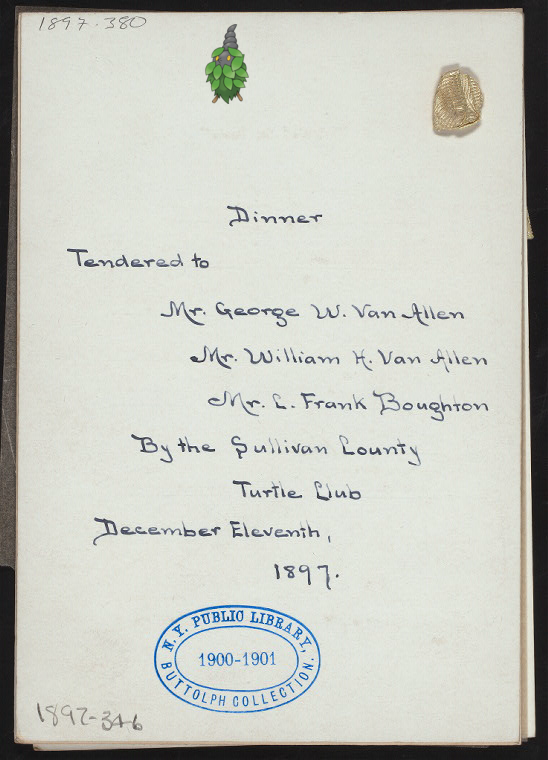 1897·380
Dinner
Tendered to
Mr. George W. Van Allen
Mr. William H. Van Allen
Mr. L. Frank Boughton
By the Sullivan County
Turtle Club
December Eleventh,
1897.
N. Y. PUBLIC LIBRARY,
1900-1901
BUTTOLPH COLLECTION.
1897-346